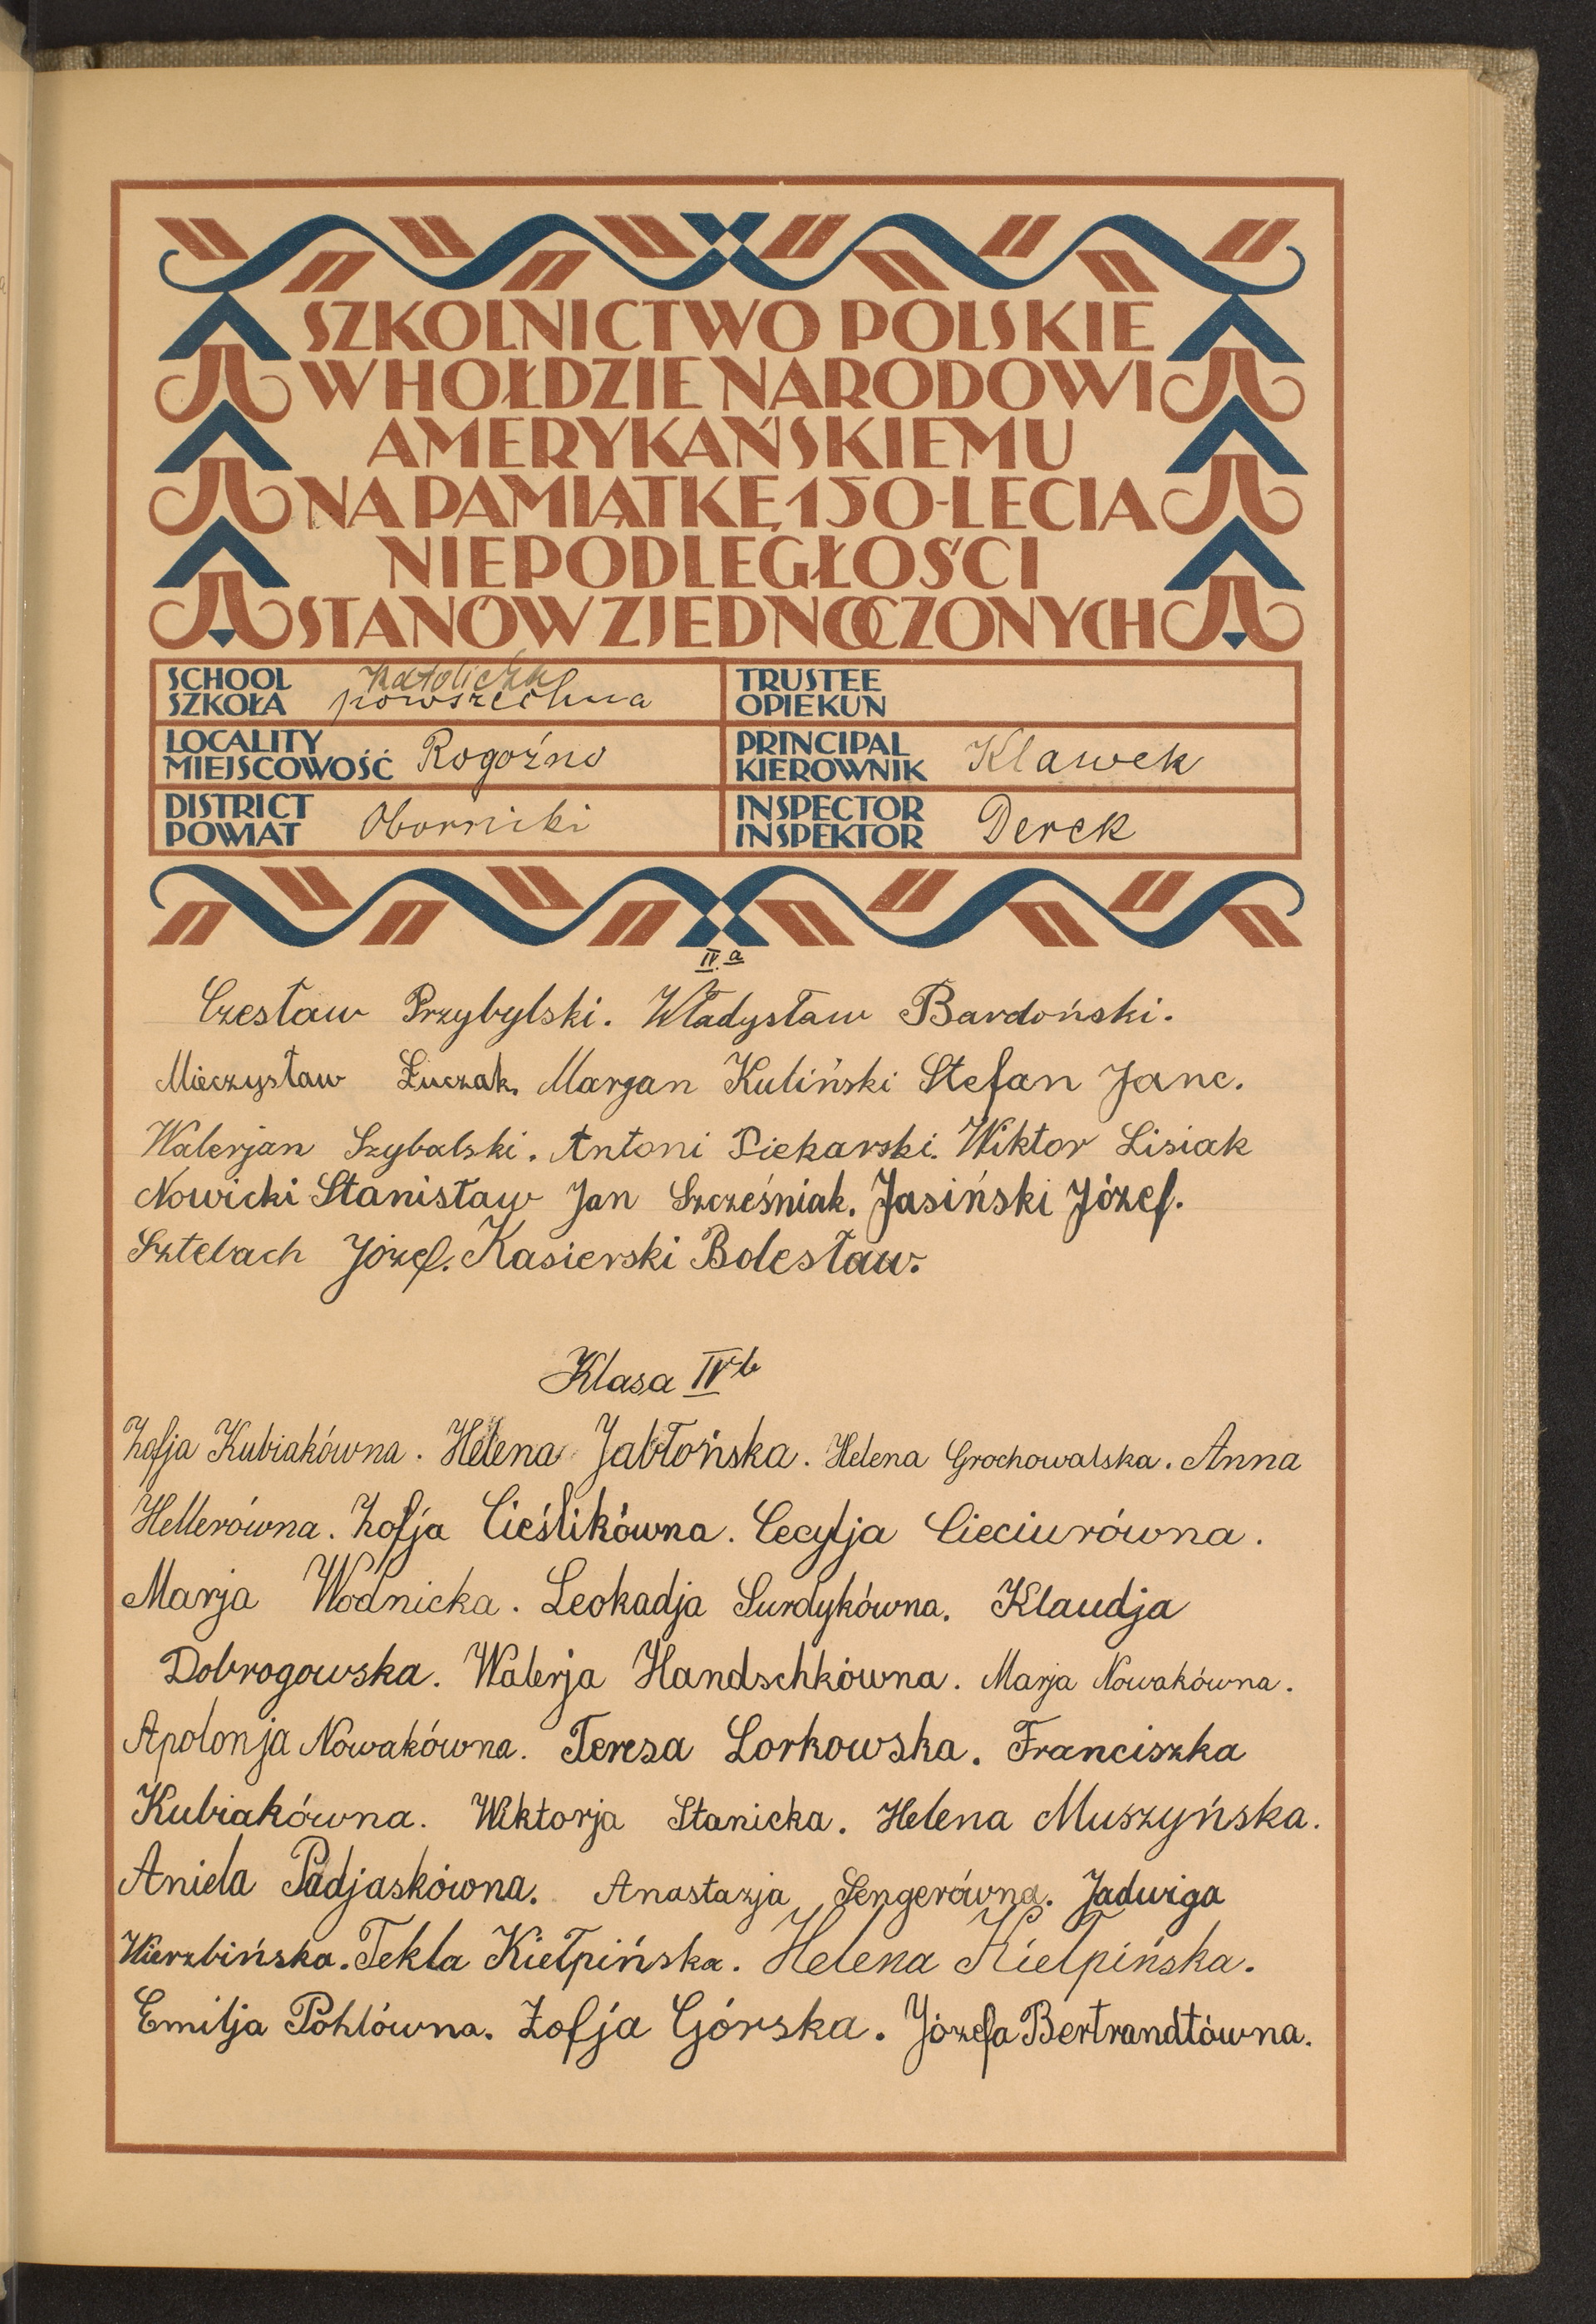 SZKOLNICTWO POLSKIE
W HOŁDZIE NARODOWI
AMERYKAŃSKIEMU
NA PAMIĄTKĘ 150-LECIA
NIEPODLEGŁOŚCI
STANÓW ZJEDNOCZONYCH
SCHOOL
SZKOŁA
Katolicka
powszechna
TRUSTEE
OPIEKUN
LOCALITY
MIEJSCOWOŚĆ
Rogoźno
PRINCIPAL
KIEROWNIK
Klawek
DISTRICT
POWIAT
Obornicki
INSPECTOR
INSPEKTOR
Derek
IV. a
Czesław Przybylski. Władysław Bardoński.
Mieczysław Łuczak. Marjan Kuliński Stefan Janc.
Walerjan Szybalski. Antoni Piekarski. Wiktor Lisiak
Nowicki Stanisław Jan Szcześniak. Jasiński Józef.
Sztebach Józef. Kasierski Bolesław.
Klasa IVb
Zofja Kubiakówna. Helena Jabłońska. Helena Grochowalska. Anna
Hellerówna. Zofja Cieślikówna. Cecylja Cieciurówna.
Marja Wodnicka. Leokadja Surdykówna. Klaudja
Dobrogowska. Walerja Handschkówna. Marja Nowakówna.
Apolonja Nowakówna. Teresa Lorkowska. Franciszka
Kubiakówna. Wiktorja Stanicka. Helena Muszyńska.
Aniela Padjaskówna. Anastazja Sengerówna. Jadwiga
Wierzbińska. Tekla Kiełpińska. Helena Kiełpińska.
Emilja Pohlówna. Zofja Górska. Józefa Bertrandtówna.